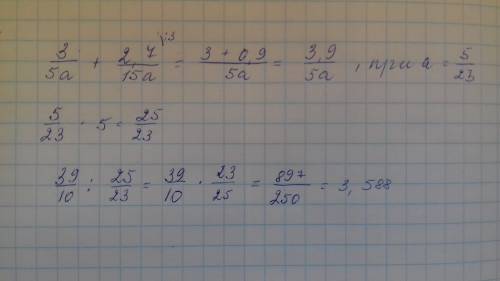 3/5a + 2,7/15a \:3 = 3 + 0,9/5a = 3,9/5a , при a = 5/23
5/23 · 5 = 25/23
39/10 : 25/23 = 39/10 · 23/25 = 897/250 = 3,588